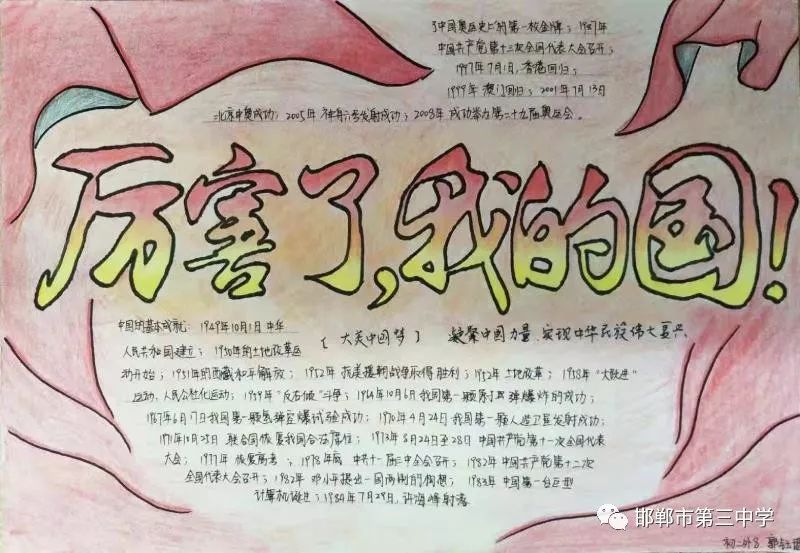 了中国奥运史上的第一枚金牌；1987年
中国共产党第十三次全国代表大会召开；
1997年7月1日，香港回归；
1999年 澳门回归；2001年7月13日
北京申奥成功；2005年 神舟六号发射成功；2008年 成功举办第二十九届奥运会。
厉害了，我的国！
中国的基本成就：1949年10月1日 中华
【大美中国梦】 凝聚中国力量，实现中华民族伟大复兴
人民共和国建立；1950年的土地改革运
动开始；1951年的西藏和平解放；1952年 抗美援朝战争取得胜利；1952年 土地改革；1958年"大跃进"
运动、人民公社化运动；1959年"反右倾"斗争；1964年10月6日我国第一颗原子弹爆炸的成功；
1967年6月17日我国第一颗氢弹空爆试验成功；1970年4月24日我国第一颗人造卫星发射成功；
1971年10月25日 联合国恢复我国合法席位；1973年8月24日至28日 中国共产党第十一次全国代表
大会；1977年 恢复高考；1978年底 中共十一届三中全会召开；1982年 中国共产党第十二次
全国代表大会召开；1982年 邓小平提出一国两制的构想；1983年 中国第一台巨型
计算机诞生；1984年7月29日，许海峰射落
邯郸市第三中学
初二外8 郭